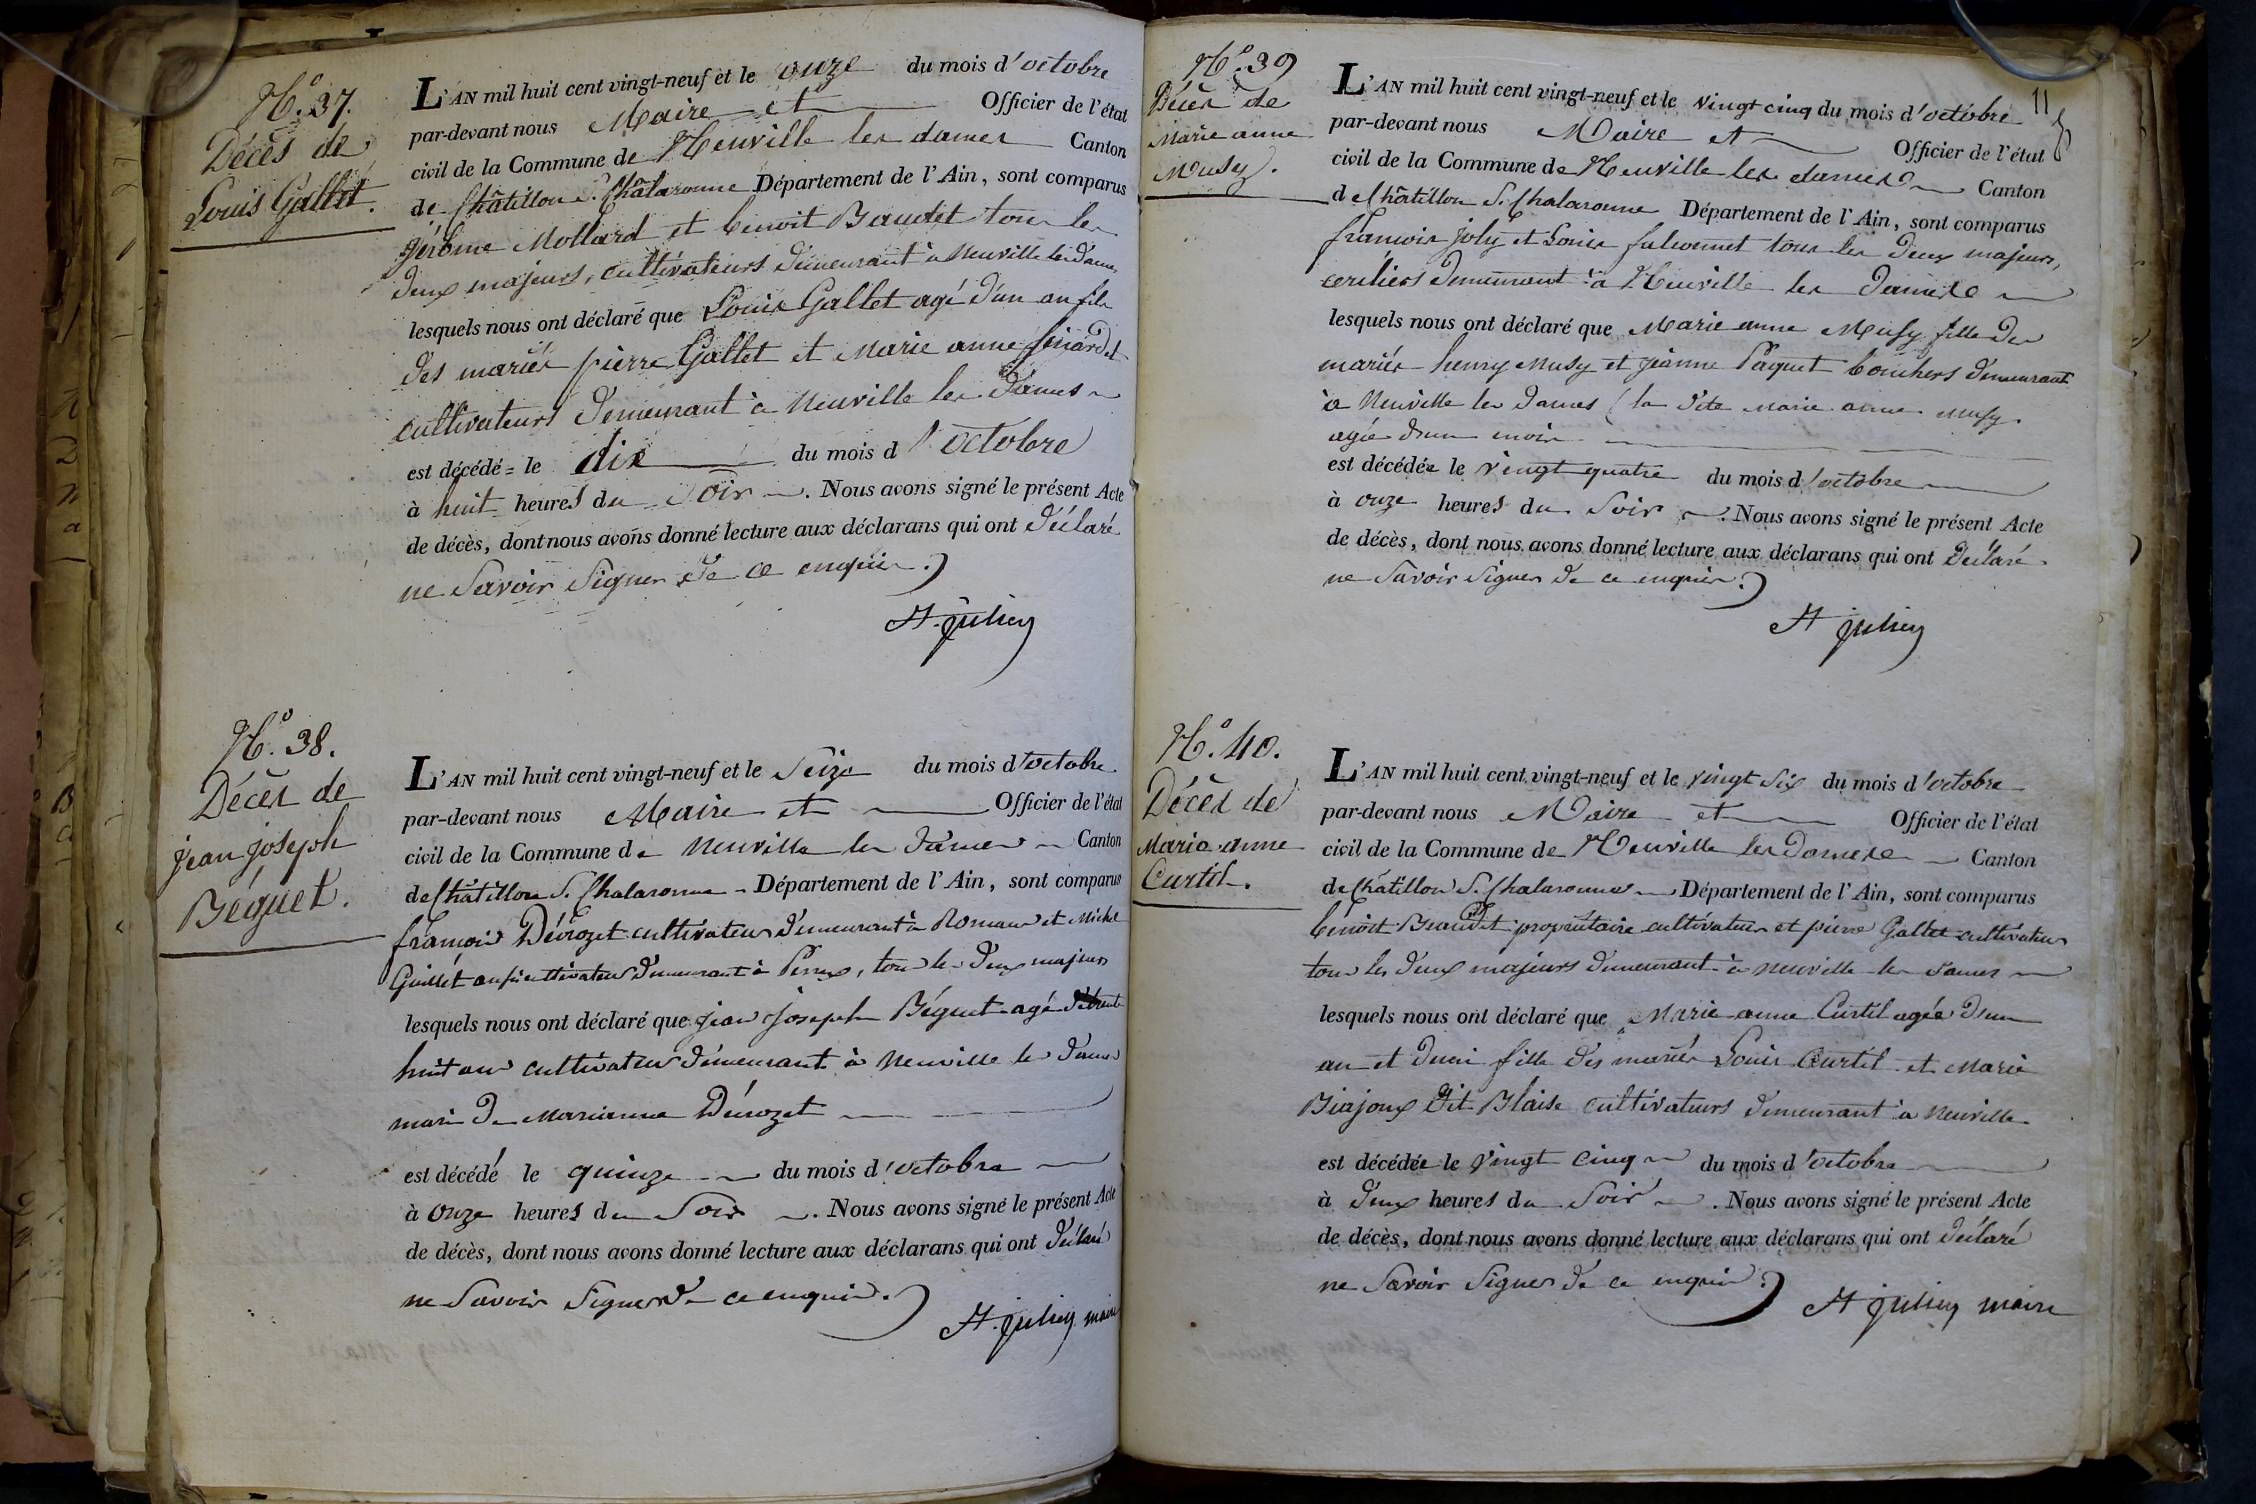 N.° 37.
Décès de
Louis Gallet.
L'AN mil huit cent vingt-neuf et le onze du mois d'octobre
par-devant nous Maire et Officier de l'état
civil de la Commune de Neuville les dames Canton
de Châtillon S. Châlaronne Département de l'Ain, sont comparus
jérôme Mollard et benoit Baudet tous les
deux majeurs, cultivateurs demeurant à Neuville les dames
lesquels nous ont déclaré que Louis Gallet agé d'un an fils
des mariés pierre Gallet et Marie anne
cultivateurs demeurant à Neuville les Dames
est décédé le dix du mois d'octobre
à huit heures du Soir. Nous avons signé le présent Acte
de décès, dont nous avons donné lecture aux déclarans qui ont déclaré
ne Savoir Signer de ce enquis.
St. julien
N.° 38.
Décès de
jean joseph
Béguet.
L'AN mil huit cent vingt-neuf et le Seize du mois d'octobre
par-devant nous Maire et Officier de l'état
civil de la Commune de Neuville les dames Canton
de Châtillon S. Chalaronne Département de l'Ain, sont comparus
françois Dérozet cultivateur demeurant à Romans et Michel
Guillet aussi cultivateur demeurant à Perrex, tous les deux majeurs
lesquels nous ont déclaré que jean joseph Béguet agé de trente
huit ans cultivateur demeurant à Neuville les dames
mari de Marianne Dérozet
est décédé le quinze du mois d'octobre
à onze heures du Soir. Nous avons signé le présent Acte
de décès, dont nous avons donné lecture aux déclarans qui ont déclaré
ne Savoir Signer de ce enquis.
St. julien maire
11
N.° 39
Décès de
Marie anne
Musy.
L'AN mil huit cent vingt-neuf et le vingt cinq du mois d'octobre
par-devant nous Maire et Officier de l'état
civil de la Commune de Neuville les dames Canton
de Châtillon S. Chalaronne Département de l'Ain, sont comparus
françois joly et Louis falconnet tous les deux majeurs,
demeurant à Neuville les Dames
lesquels nous ont déclaré que Marie anne Musy fille des
mariés henry Musy et jeanne Paquet bouchers demeurant
à Neuville les dames (la dite Marie anne Musy
agée d'un mois
est décédée le vingt quatre du mois d'octobre
à onze heures du Soir. Nous avons signé le présent Acte
de décès, dont nous avons donné lecture aux déclarans qui ont déclaré
ne Savoir Signer de ce enquis.
St julien
N.° 40.
Décès de
Marie anne
Curtil.
L'AN mil huit cent vingt-neuf et le vingt Six du mois d'octobre
par-devant nous Maire et Officier de l'état
civil de la Commune de Neuville les Dames Canton
de Châtillon S. Chalaronne Département de l'Ain, sont comparus
benoit Beaudet propriétaire cultivateur et pierre Gallet cultivateur
tous les deux majeurs demeurant à Neuville les dames
lesquels nous ont déclaré que Marie anne Curtil agée d'un
an et demi fille des mariés Louis Curtil et Marie
Biajoux dit Blaise cultivateurs demeurant à Neuville
est décédée le vingt cinq du mois d'octobre
à deux heures du Soir. Nous avons signé le présent Acte
de décès, dont nous avons donné lecture aux déclarans qui ont déclaré
ne Savoir Signer de ce enquis.
St julien maire